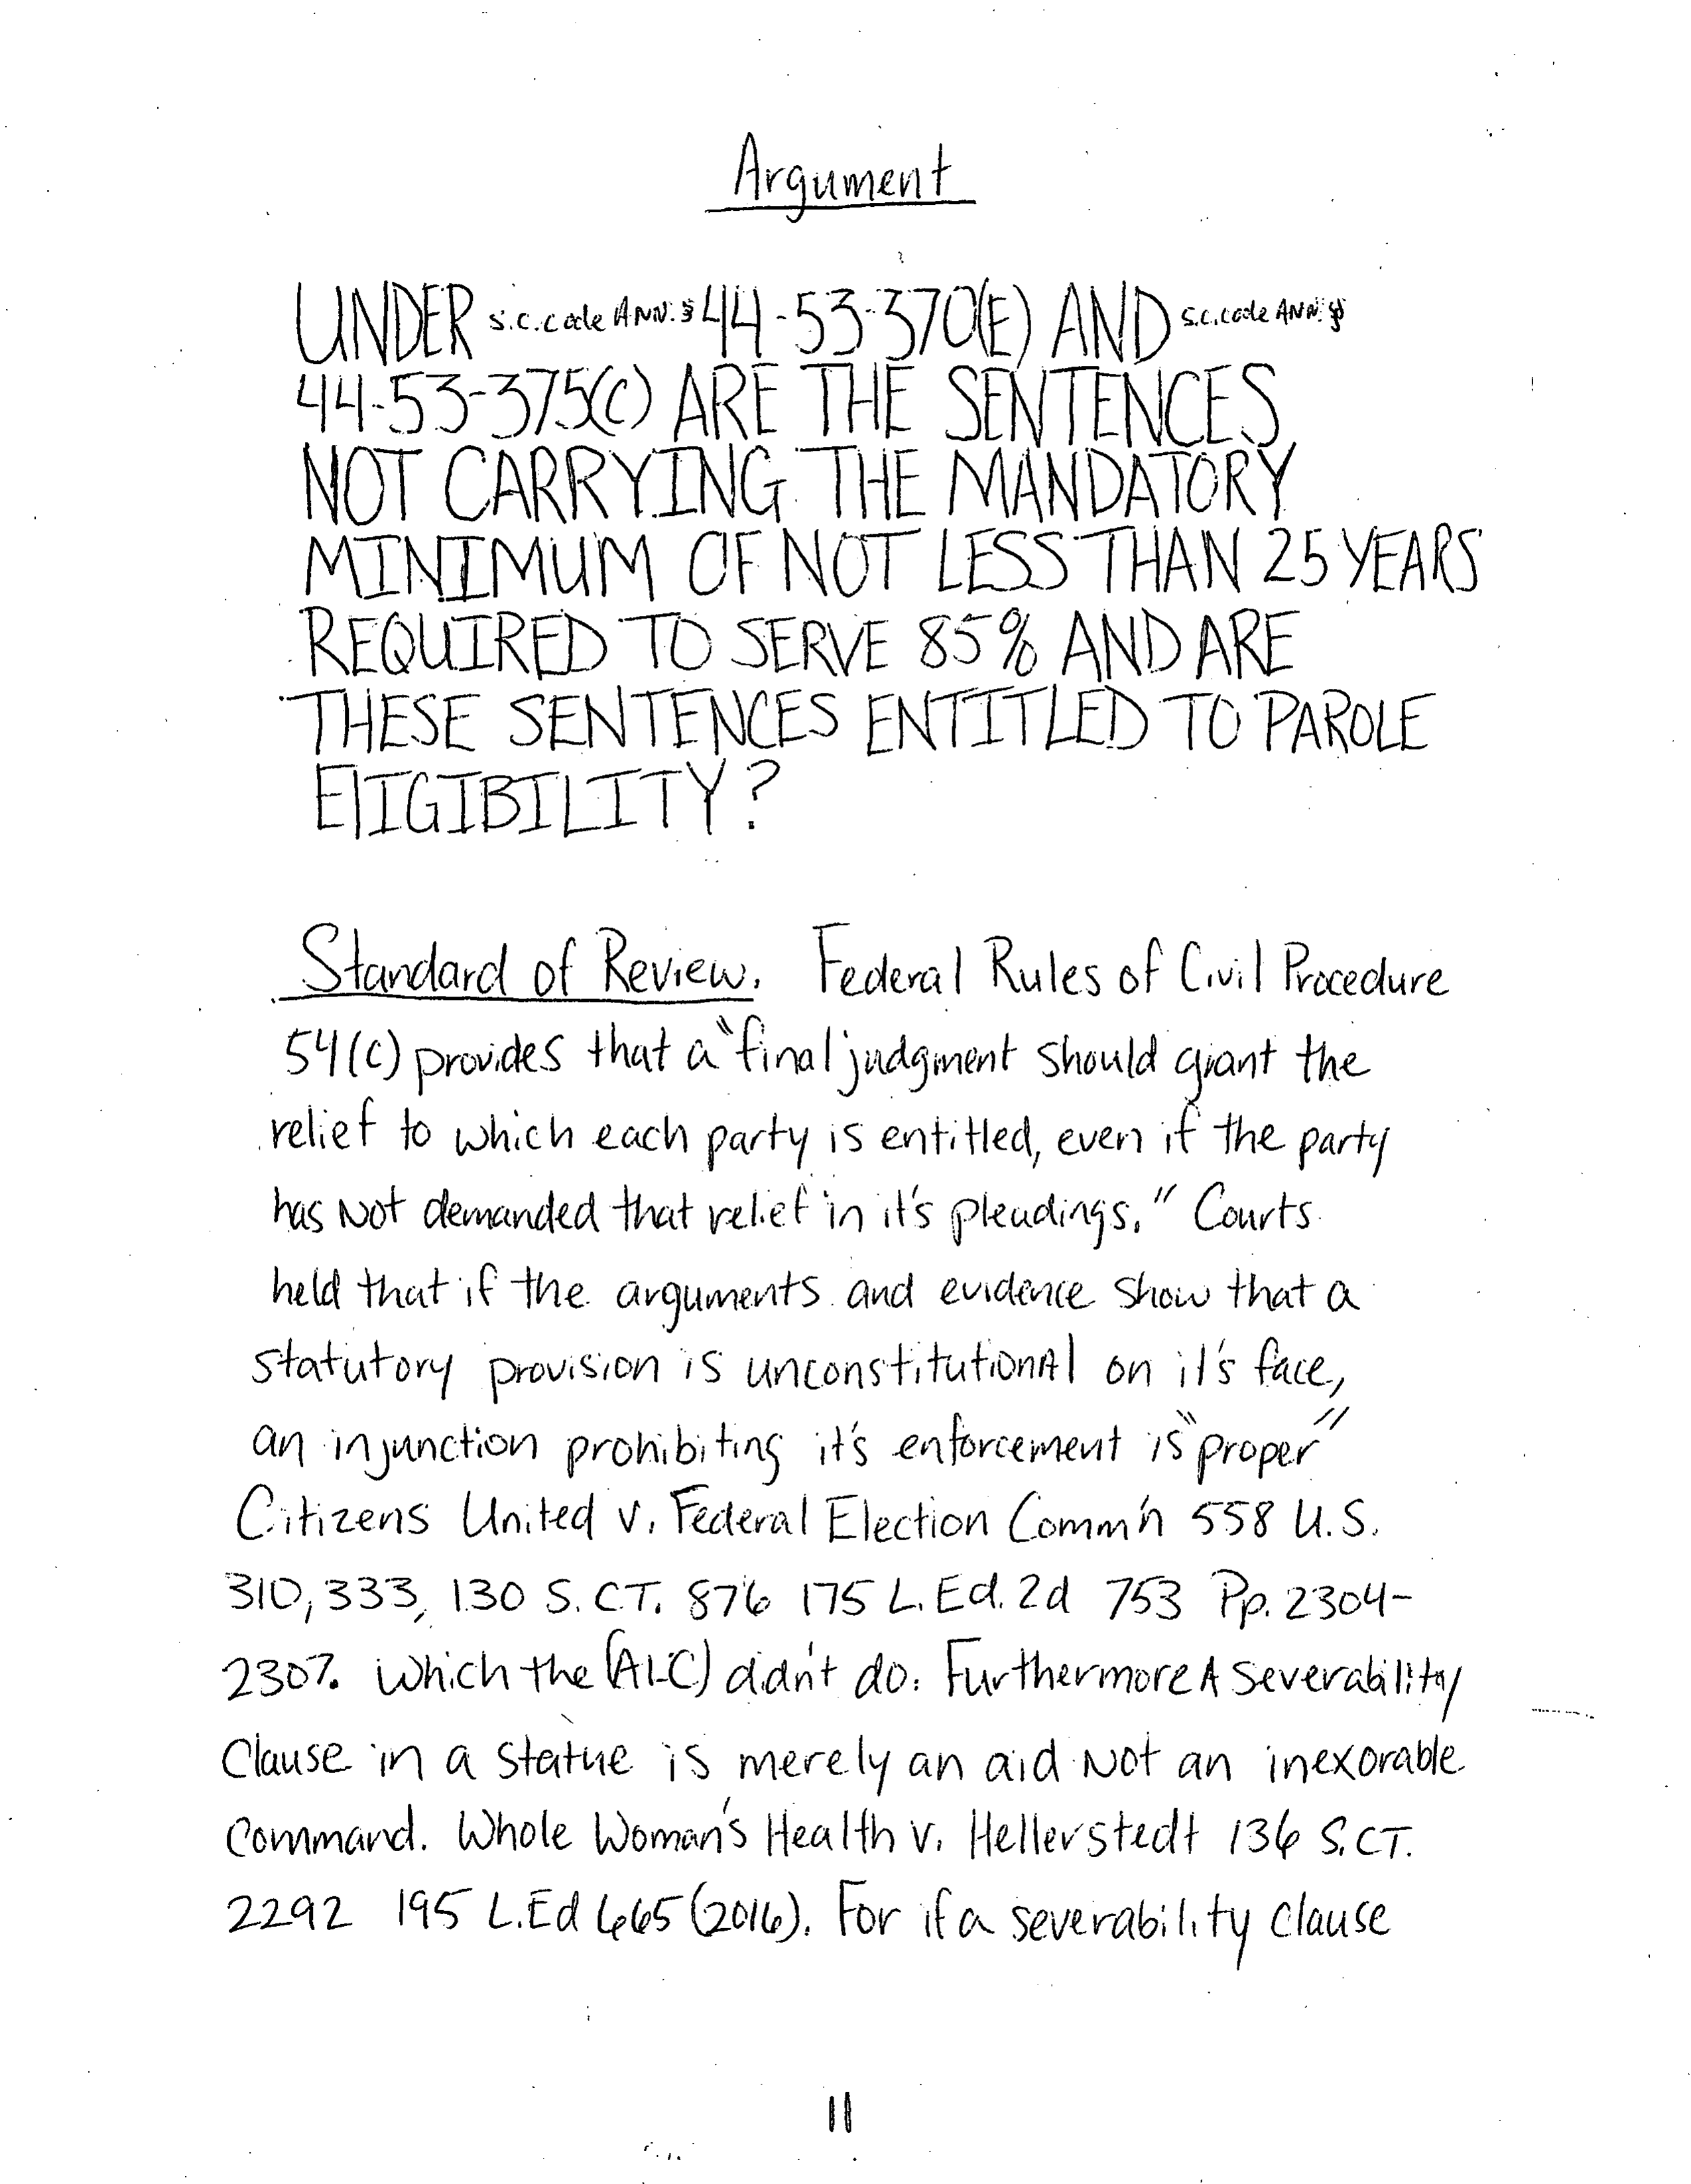 Argument
UNDER S.C. Code ANN. § 44-53-370(E) AND S.C. Code ANN. §
44-53-375(C) ARE THE SENTENCES
NOT CARRYING THE MANDATORY
MINIMUM OF NOT LESS THAN 25 YEARS
REQUIRED TO SERVE 85% AND ARE
THESE SENTENCES ENTITLED TO PAROLE
ElIGIBILITY?
Standard of Review. Federal Rules of Civil Procedure
54(c) provides that a "final judgment should grant the
relief to which each party is entitled, even if the party
has Not demanded that relief in it's pleadings." Courts
held that if the arguments and evidence show that a
statutory provision is unconstitutionAl on it's face,
an injunction prohibiting it's enforcement is "proper"
Citizens United v. Federal Election Comm'n 558 U.S.
310, 333, 130 S. CT. 876 175 L. Ed. 2d 753 Pp. 2304-
2307. Which the (ALC) didn't do. Furthermore A Severability
Clause in a statue is merely an aid Not an inexorable
Command. Whole Woman's Health v. Hellerstedt 136 S.CT.
2292 195 L.Ed 665 (2016). For if a severability clause
11